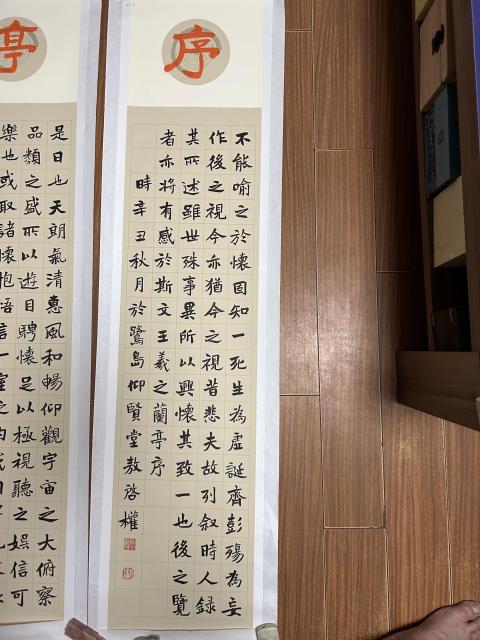 序
不能喻之於懷固知一死生為虛誕齊彭殤為妄
作後之視今亦猶今之視昔悲夫故列叙時人錄
其所述雖世殊事異所以興懷其致一也後之覽
者亦將有感於斯文王羲之蘭亭序
時辛丑秋月於鷺島仰賢堂敖啓權
亭
是日也天朗氣清惠風和暢仰觀宇宙之大俯察
品類之盛所以遊目騁懷足以極視聽之娛信可
樂也或取諸懷抱悟言一室之内或